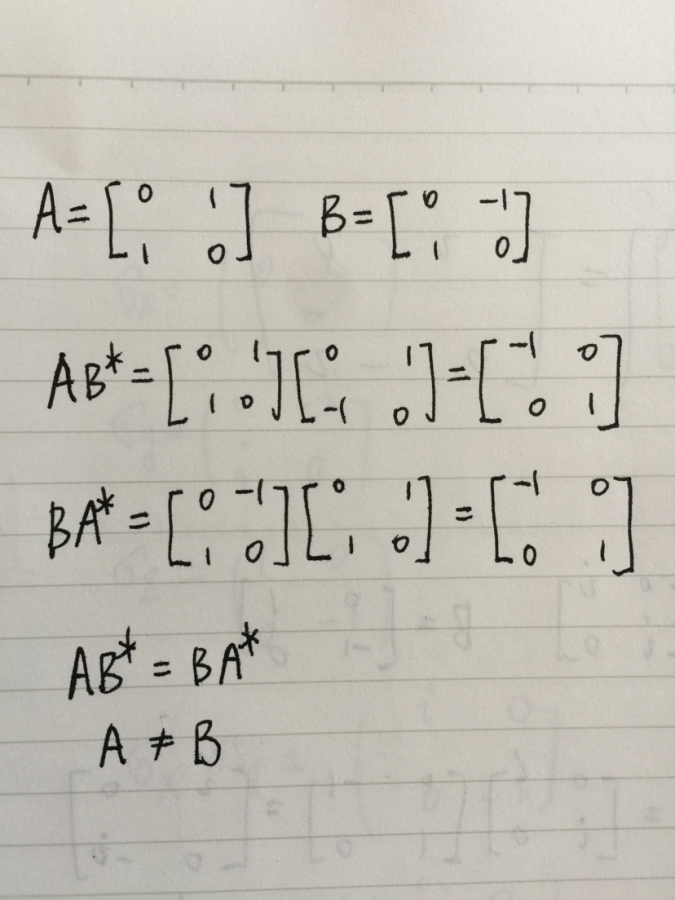 A = [0 1; 1 0] B = [0 -1; 1 0]
AB* = [0 1; 1 0] [0 1; -1 0] = [-1 0; 0 1]
BA* = [0 -1; 1 0] [0 1; 1 0] = [-1 0; 0 1]
AB* = BA*
A ≠ B